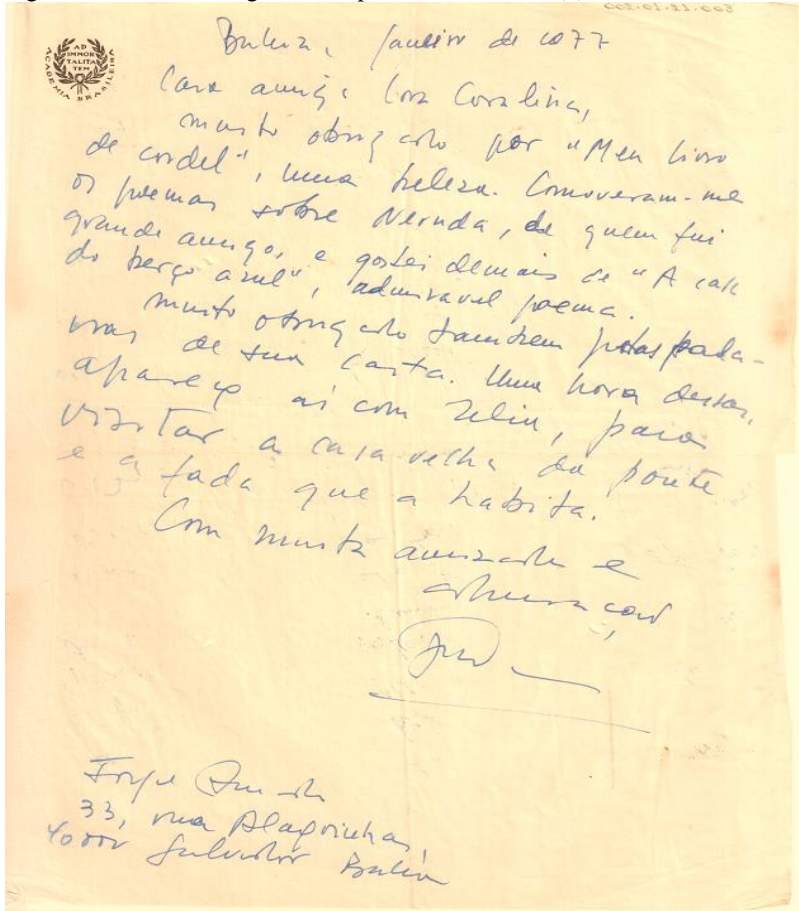 002-01-21.003
AD
IMMOR
TALITA
TEM
ACADEMIA BRASILEIRA
Bahia, janeiro de 1977
Cara amiga Cora Coralina,
muito obrigado por "Meu livro
de cordel", uma beleza. Comoveram-me
os poemas sobre Neruda, de quem fui
grande amigo, e gostei demais de "A casa
do berço azul", admiravel poema.
Muito obrigado tambem pelas pala-
vras de sua carta. Uma hora dessas,
apareço aí com Zelia, para
visitar a casa velha da ponte
e a fada que a habita.
Com muita amizade e
admiração,
Jorge Amado
33, rua Alagoinhas,
40000 Salvador Bahia